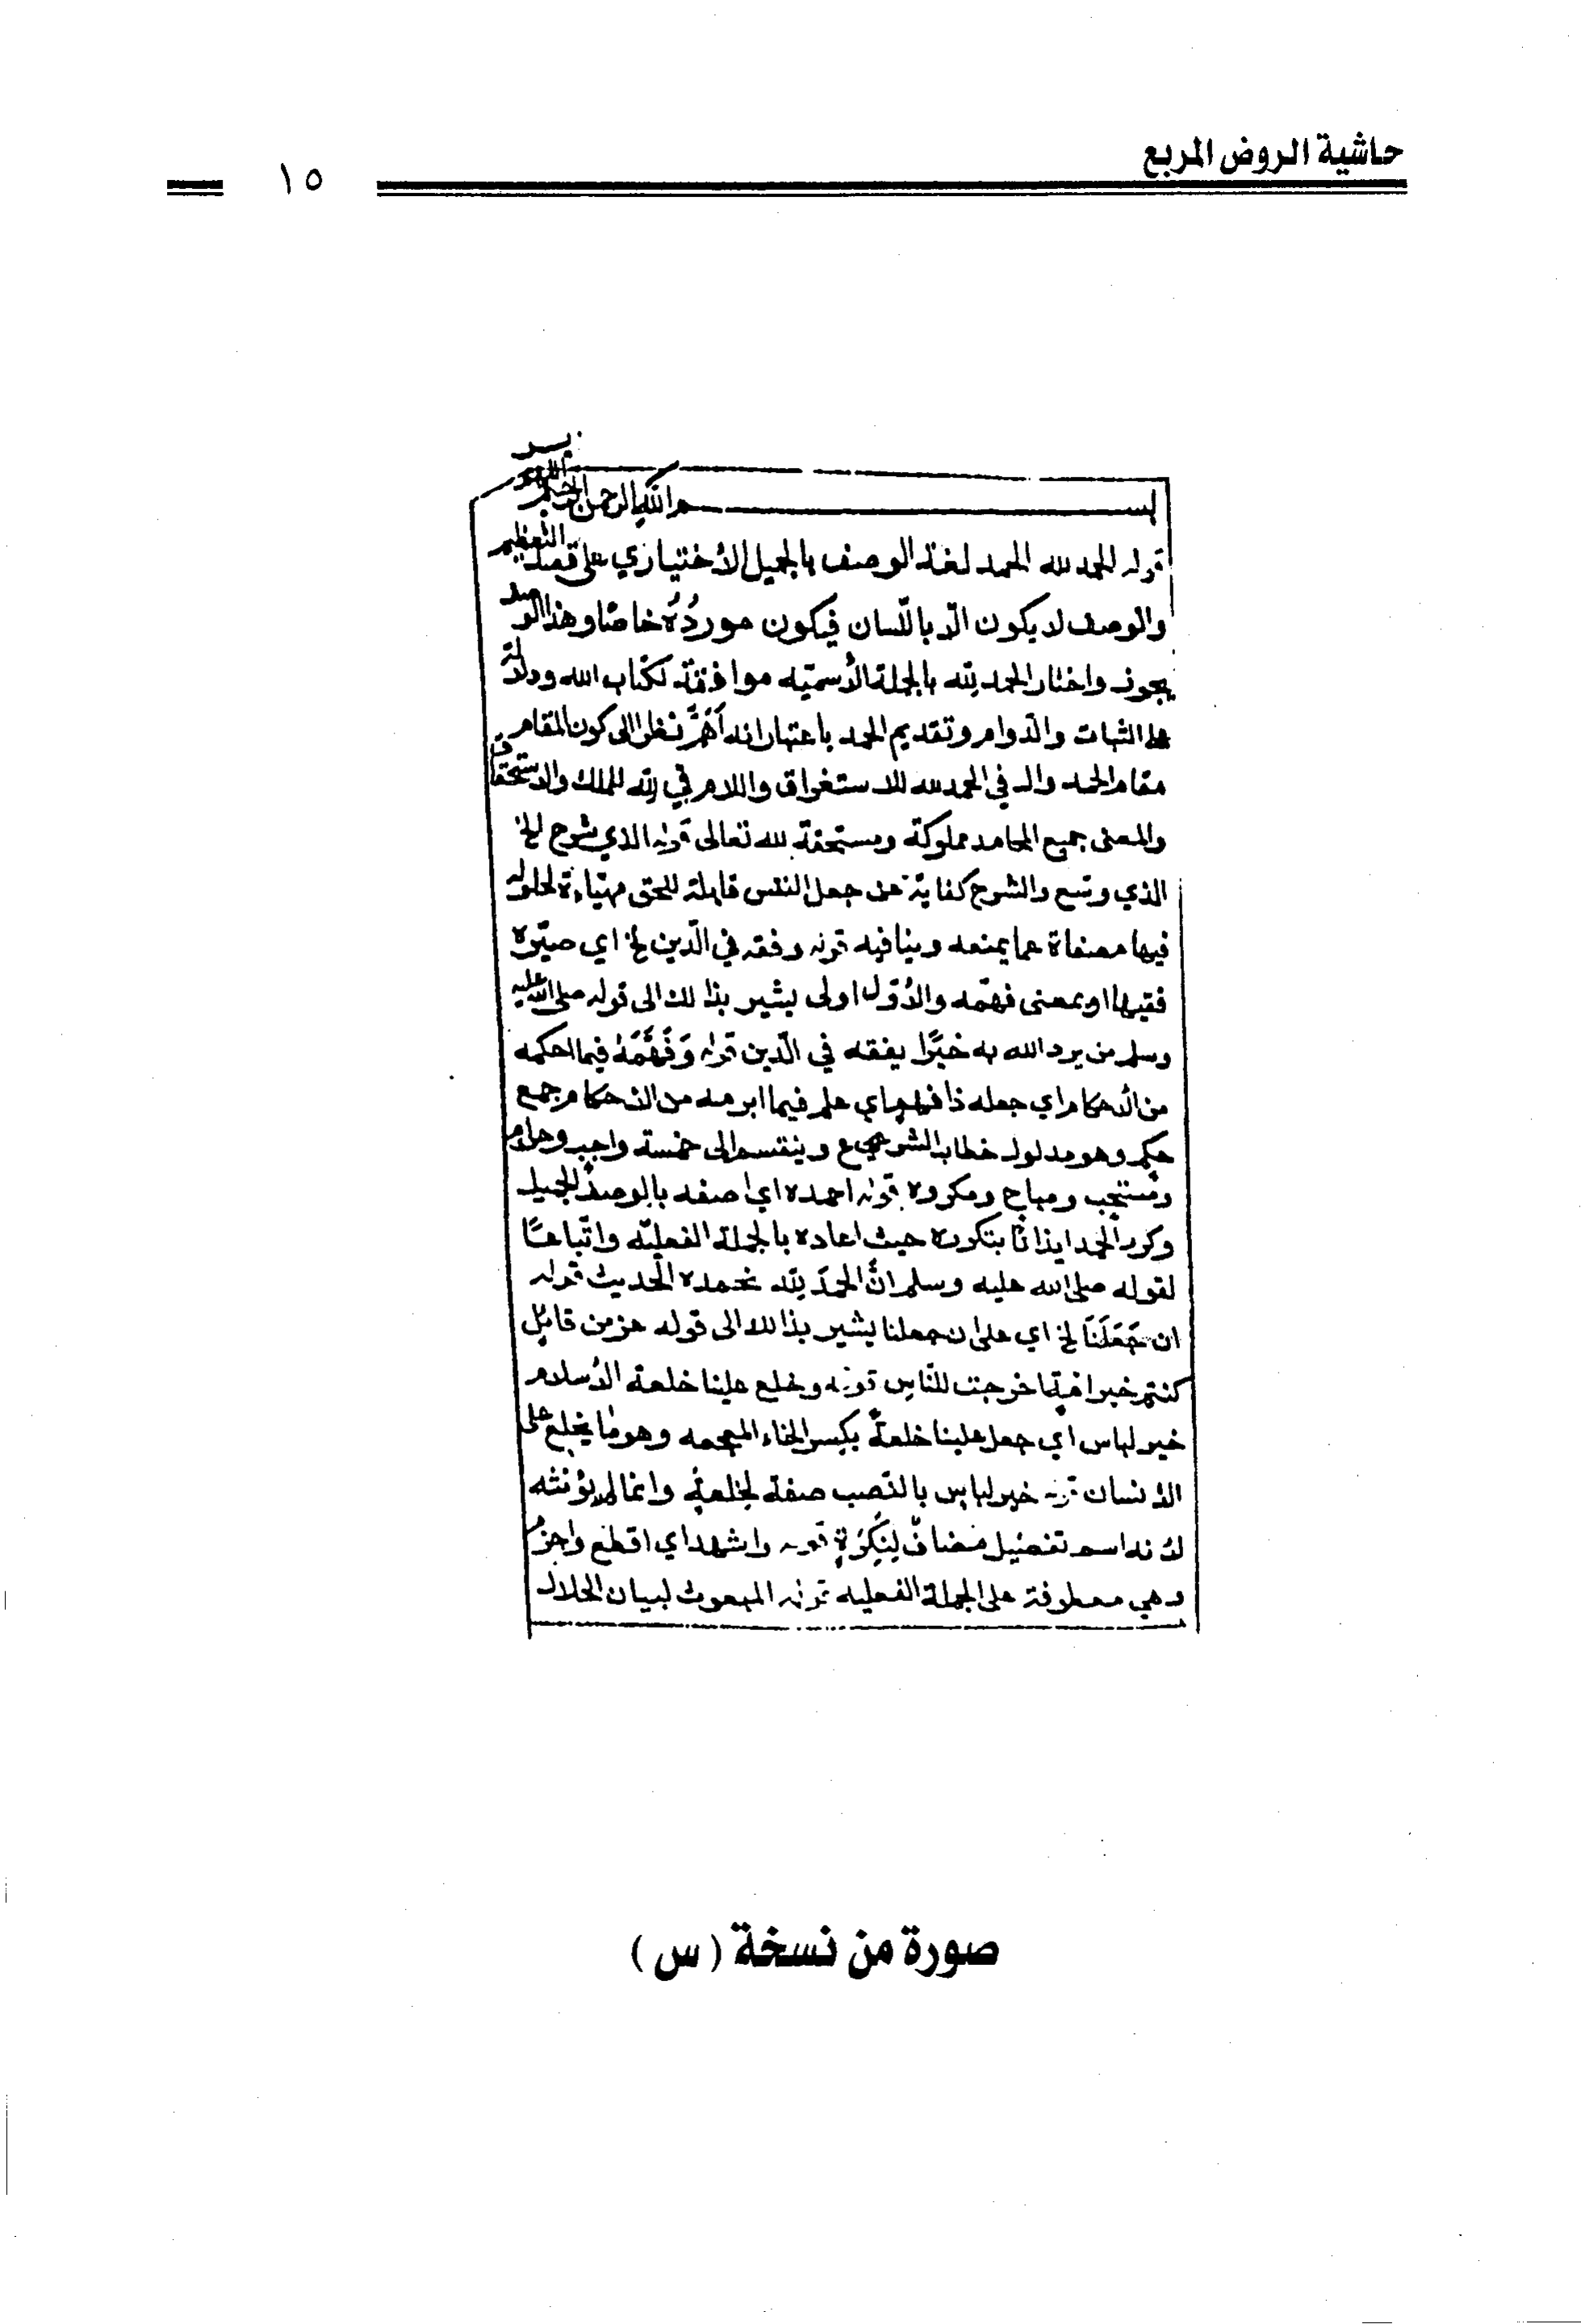 حاشية الروض المربع
١٥
بسم الله الرحمن الرحيم
قوله الحمد لله الحمد لغة الوصف بالجميل الاختياري على قصد التعظيم
والوصف لا يكون الا باللسان فيكون مورده خاصا وهذا الوصف
يجوز واختار الحمد لله بالجملة الأسمية موافقة لكتاب الله ودلالة
على الثبات والدوام وتقديم الحمد باعتبار انه أهم نظرا الى كون المقام
مقام الحمد وال في الحمد لله للاستغراق واللام في لله للملك والاستحقاق
والمعنى جميع المحامد مملوكة ومستحقة لله تعالى قوله الذي شرح الخ
الذي وسع والشرح كناية عن جعل النفس قابلة للحق مهيئة لحلوله
فيها مصفاة عما يمنعه وينافيه قوله وفقه في الدين الخ اي صيره
فقيها او بمعنى فهمه والأول اولى يشير بذلك الى قوله صلى الله عليه
وسلم من يرد الله به خيرا يفقه في الدين قوله وَفَهَّمَهُ فيما احكمه
من الاحكام اي جعله ذا فهم اي علم فيما ابرمه من الاحكام جمع
حكم وهو مدلول خطاب الشرع وينقسم الى خمسة واجب وحرام
ومستحب ومباح ومكروه قوله احمده اي اصفه بالوصف الجميل
وكرر الحمد ايذانا بتكرره حيث اعاده بالجملة الفعلية واتباعا
لقوله صلى الله عليه وسلم ان الحمد لله نحمده الحديث قوله
ان جَعَلَنَا الخ اي على ان جعلنا يشير بذلك الى قوله عز من قائل
كنتم خير امة اخرجت للناس قوله وخلع علينا خلعة الأسلام
خير لباس اي جعل علينا خلعة بكسر الخاء المعجمه وهو ما يخلع على
الانسان قوله خير لباس بالنصب صفة لخلعة وانما لم يؤنثه
لانه اسم تفضيل مضاف لنكرة قوله واشهد اي اقطع واجزم
وهي معطوفة على الجملة الفعليه قوله المبعوث لبيان الحلال
صورة من نسخة (س)